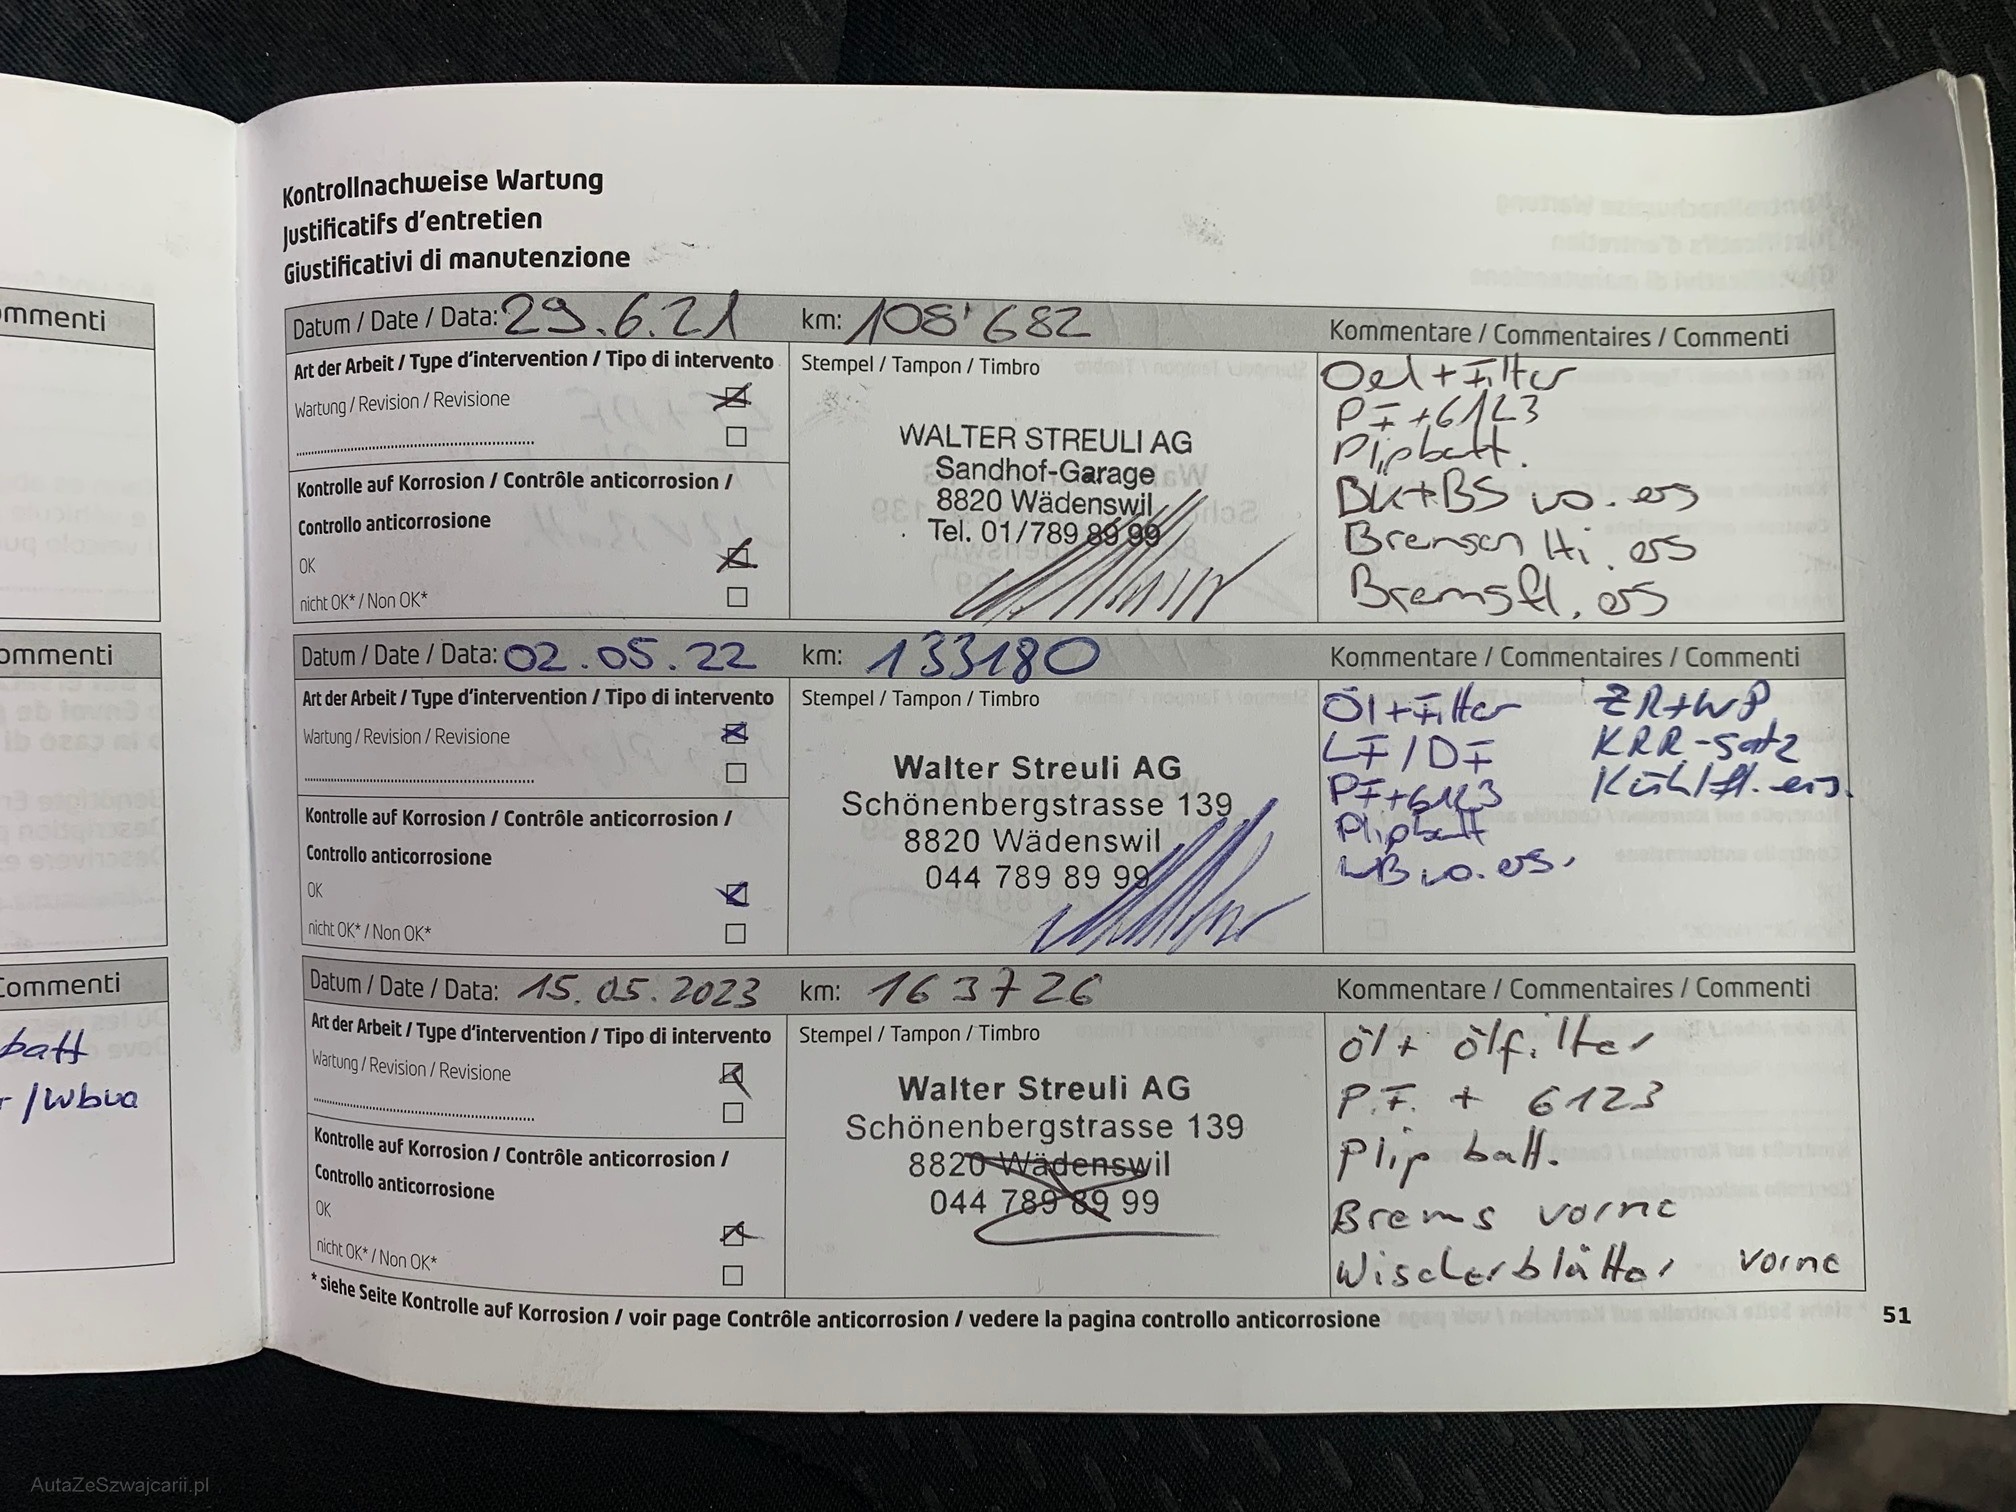 ommenti
ommenti
Commenti
batt
r/Wbva
Kontrollnachweise Wartung
Justificatifs d'entretien
Giustificativi di manutenzione
Datum / Date / Data: 29.6.21 km: 108'682 Kommentare / Commentaires / Commenti
Art der Arbeit / Type d'intervention / Tipo di intervento
Wartung / Revision / Revisione
Kontrolle auf Korrosion / Contrôle anticorrosion /
Controllo anticorrosione
OK
nicht OK* / Non OK*
Stempel / Tampon / Timbro
WALTER STREULI AG
Sandhof-Garage
8820 Wädenswil
Tel. 01/789 89 99
Oel + Filter
PF + 6123
Plipbatt.
BK+BS vo. ers
Bremsen Hi. ers
Bremsfl. ers
Datum / Date / Data: 02.05.22 km: 133180 Kommentare / Commentaires / Commenti
Art der Arbeit / Type d'intervention / Tipo di intervento
Wartung / Revision / Revisione
Kontrolle auf Korrosion / Contrôle anticorrosion /
Controllo anticorrosione
OK
nicht OK* / Non OK*
Stempel / Tampon / Timbro
Walter Streuli AG
Schönenbergstrasse 139
8820 Wädenswil
044 789 89 99
Öl+Filter ZR+WP
LF/DF KRR-Satz
PF+6123 Kühlfl. ers.
Plipbatt
WB vo. ers.
Datum / Date / Data: 15.05.2023 km: 163726 Kommentare / Commentaires / Commenti
Art der Arbeit / Type d'intervention / Tipo di intervento
Wartung / Revision / Revisione
Kontrolle auf Korrosion / Contrôle anticorrosion /
Controllo anticorrosione
OK
nicht OK* / Non OK*
Stempel / Tampon / Timbro
Walter Streuli AG
Schönenbergstrasse 139
8820 Wädenswil
044 789 89 99
Öl + Ölfilter
P.F. + 6123
Plip batt.
Brems vorne
Wischerblätter vorne
* siehe Seite Kontrolle auf Korrosion / voir page Contrôle anticorrosion / vedere la pagina controllo anticorrosione
51
AutaZeSzwajcarii.pl